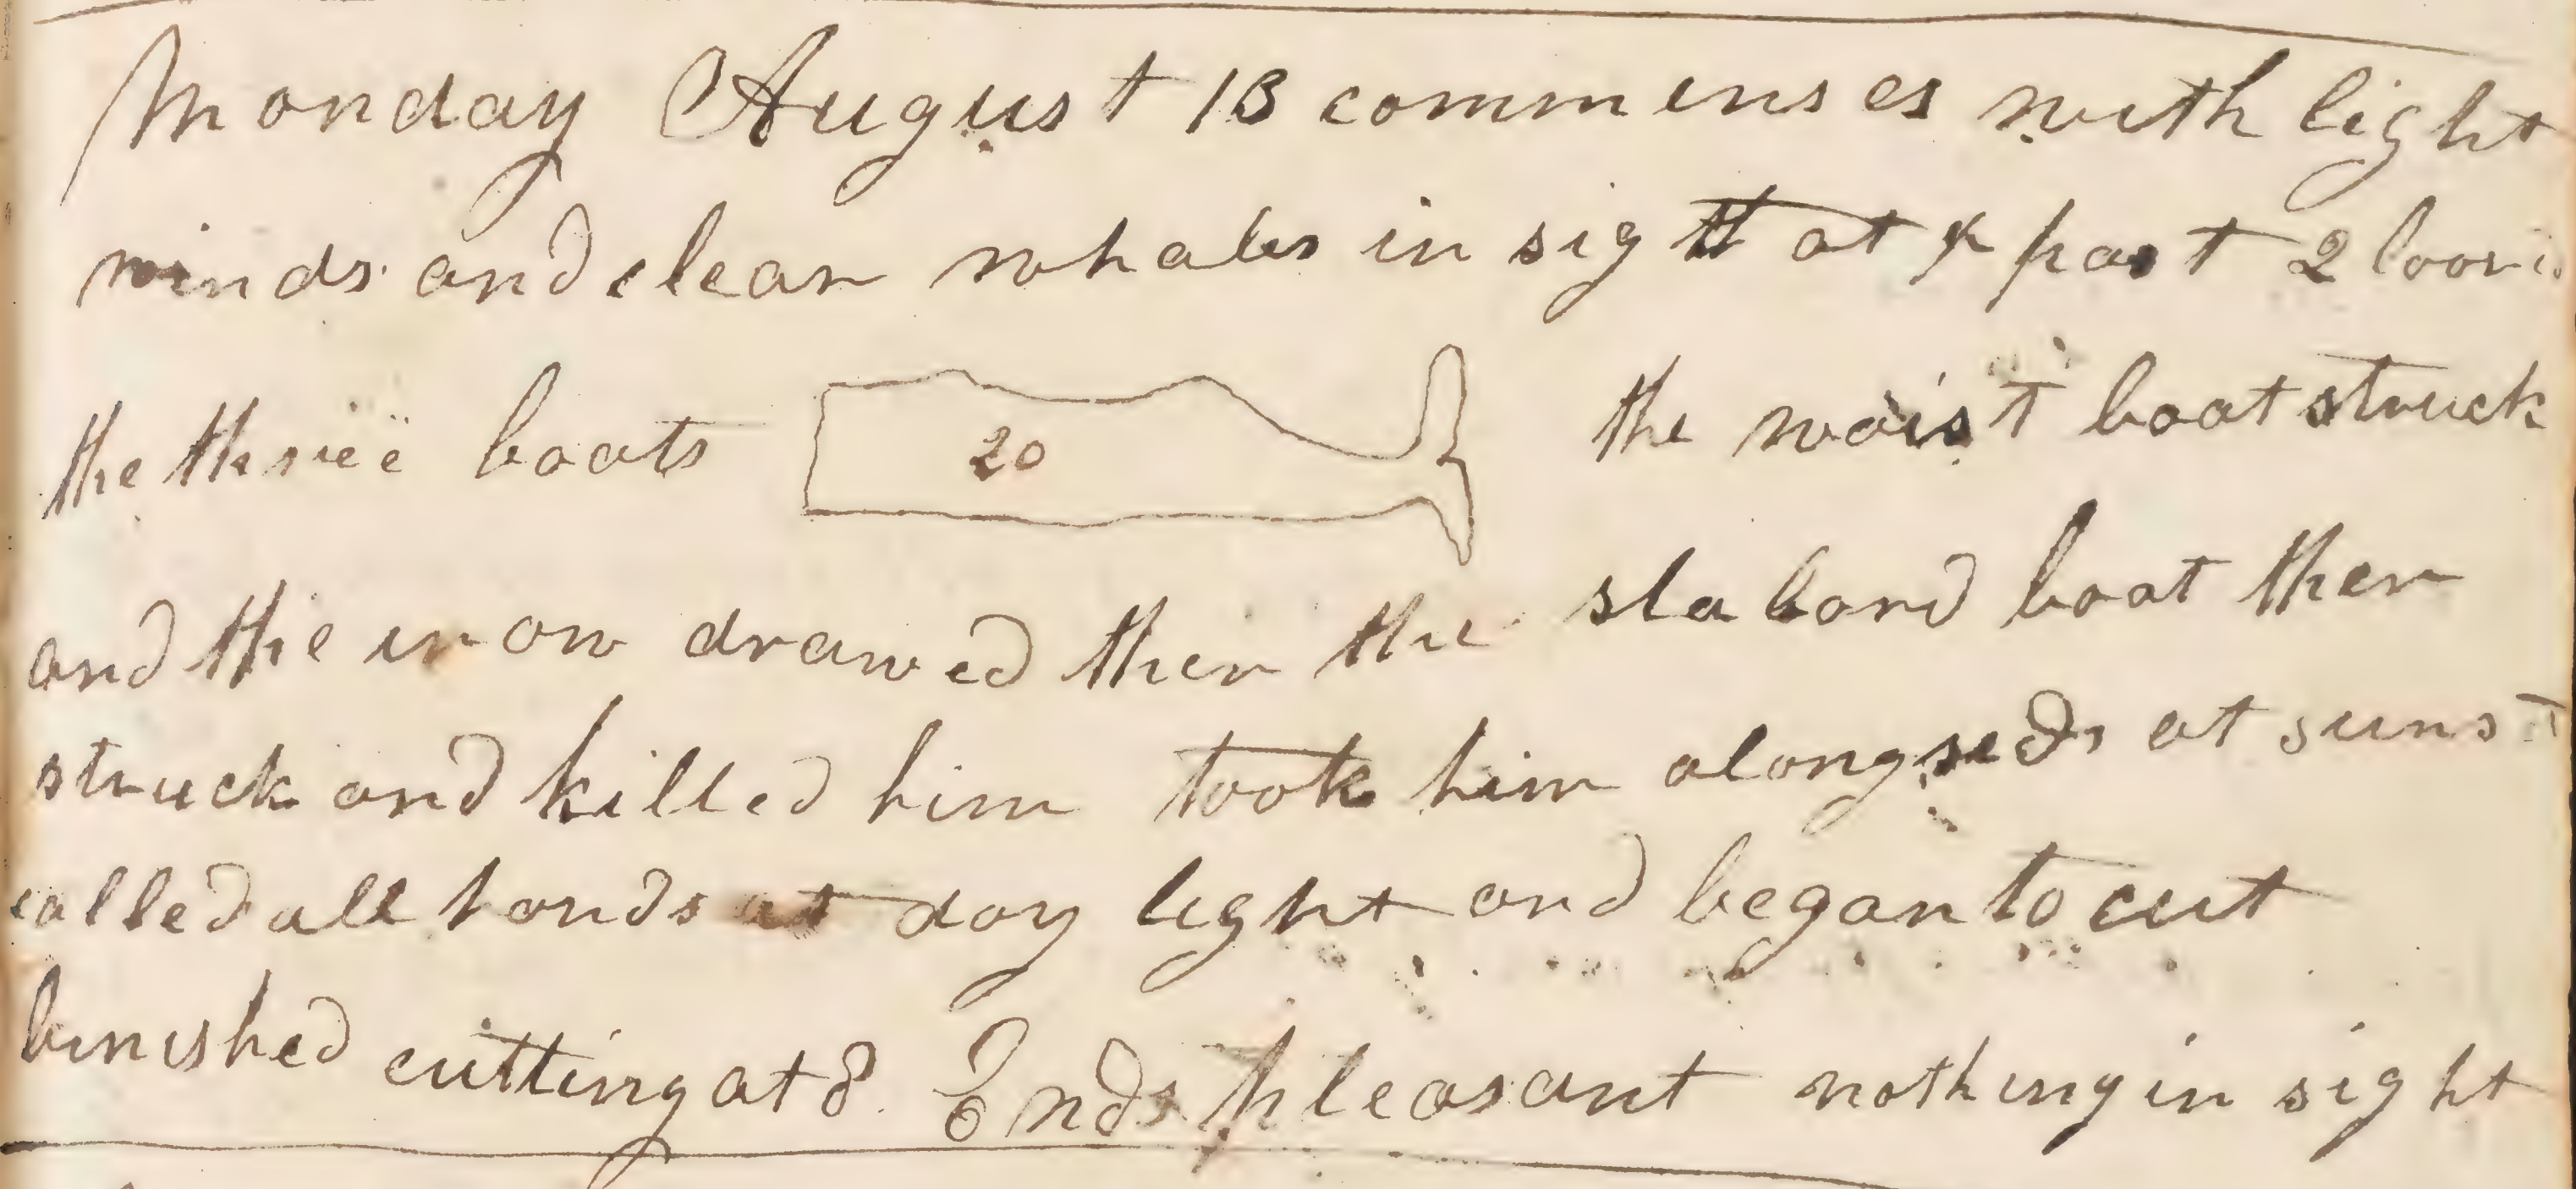 Monday August 13 commenses with light
winds and clear whales in sight at past 2
the three boats 20 the waist boat struck
and the iron drawed then the slabord boat then
struck and killed him took him alongseds at sunst
called all hands at day light and began to cut
finished cutting at 8. Ends pleasant nothing in sight